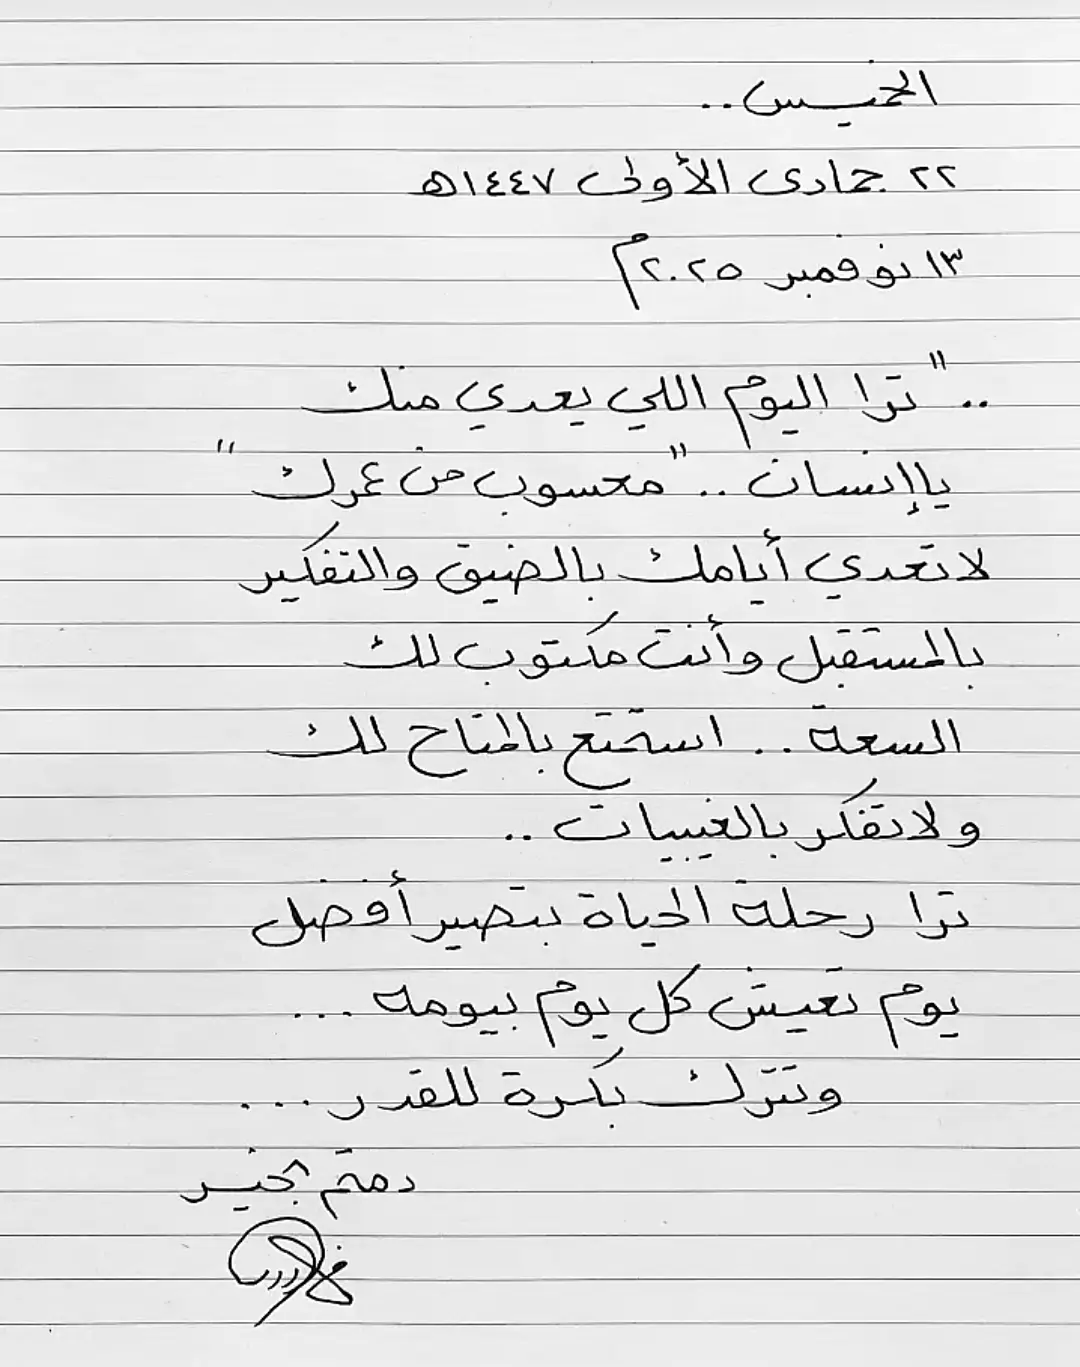 الخميس..
٢٢ جمادى الأولى ١٤٤٧هـ
١٣ نوفمبر ٢٠٢٥م
.. "ترا اليوم اللي يعدي منك
ياإنسان .. "محسوب من عمرك"
لاتعدي أيامك بالضيق والتفكير
بالمستقبل وأنت مكتوب لك
السعة .. استمتع بالمتاح لك
ولاتفكر بالغيبيات ..
ترا رحلة الحياة بتصير أفضل
يوم تعيش كل يوم بيومه ...
وتترك بكرة للقدر ...
دمتم بخير